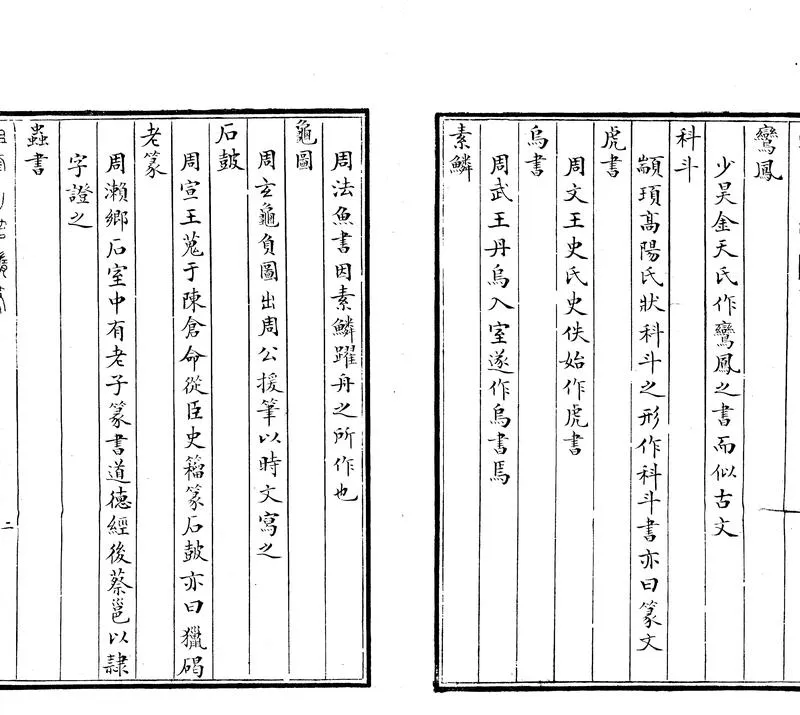 鸞鳳
少昊金天氏作鸞鳳之書而似古文
科斗
顓頊高陽氏狀科斗之形作科斗書亦曰篆文
虎書
周文王史氏史佚始作虎書
鳥書
周武王丹烏入室遂作鳥書焉
素鱗
周法魚書因素鱗躍舟之所作也
龜圖
周玄龜負圖出周公援筆以時文寫之
石鼓
周宣王蒐于陳倉命從臣史籀篆石鼓亦曰獵碣
老篆
周瀨鄉石室中有老子篆書道德經後蔡邕以隸
字證之
蟲書
二